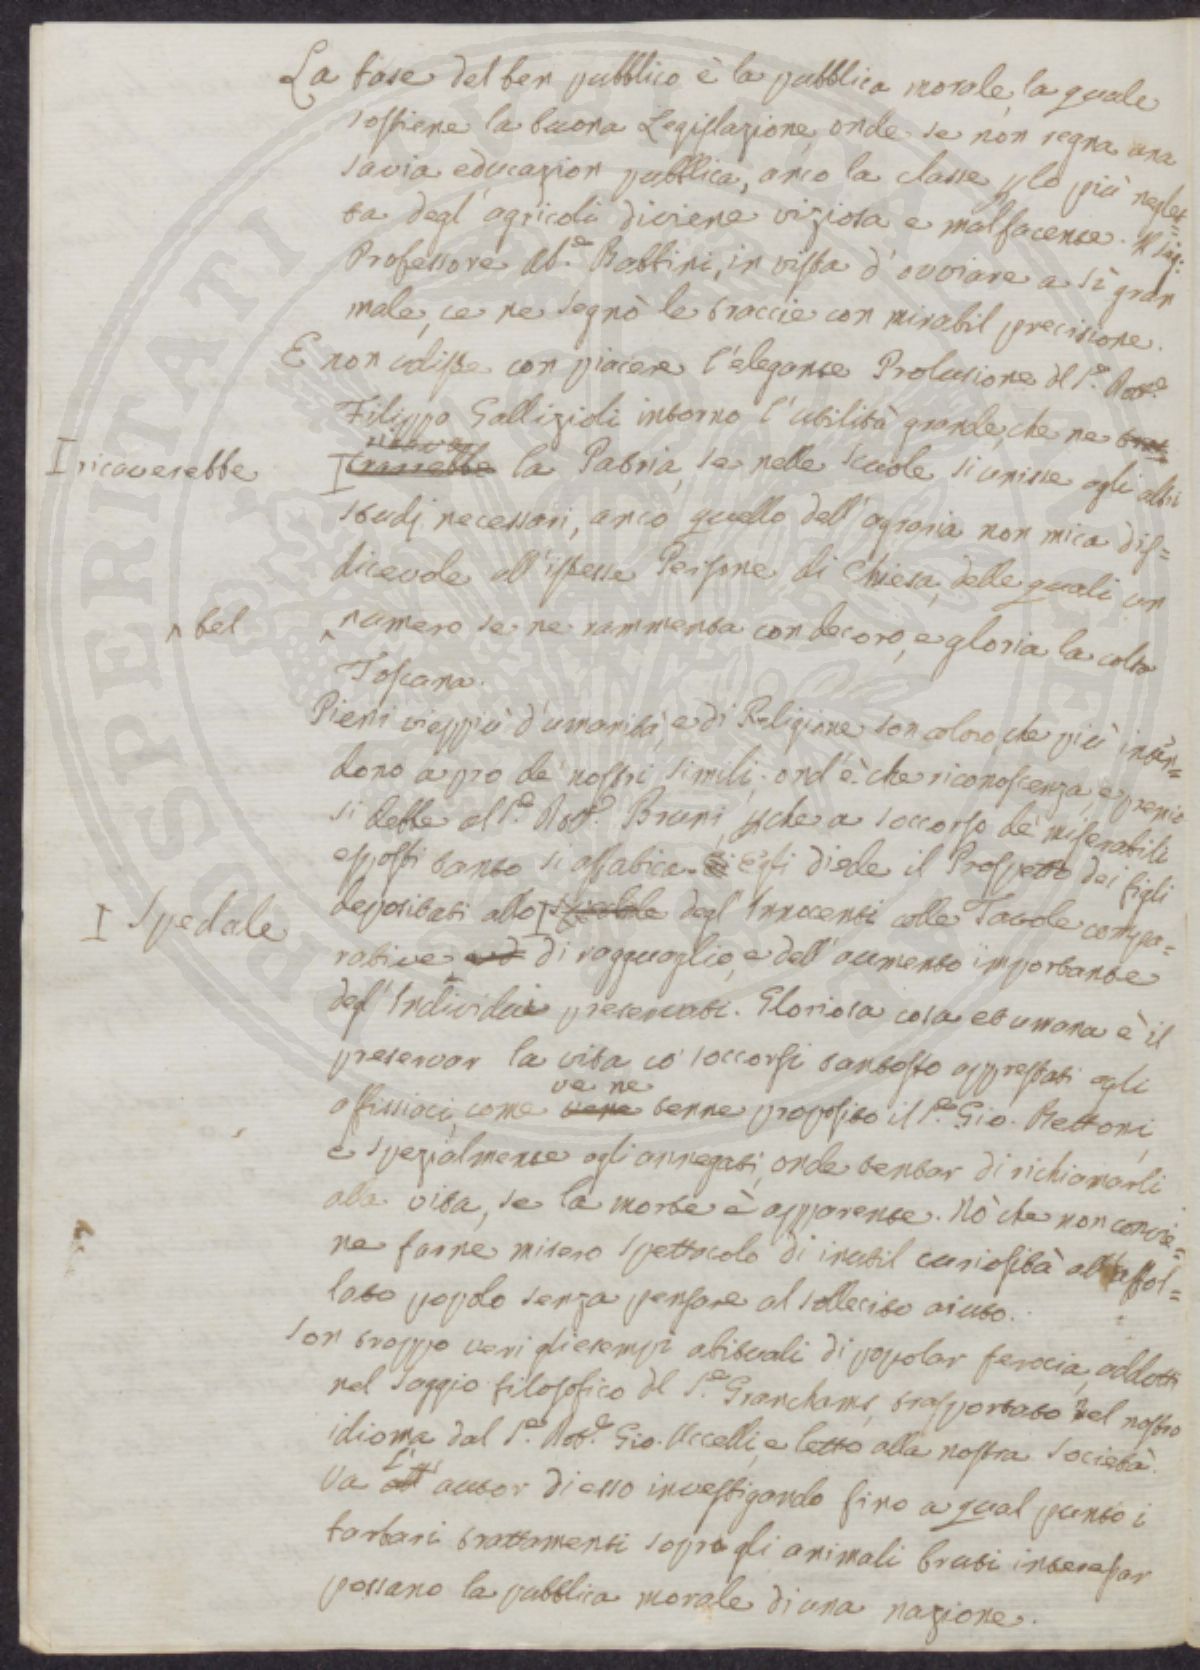 La base del ben pubblico è la pubblica morale, la quale
sostiene la buona Legislazione, onde se non regna una
savia educazion pubblica, anco la classe p lo più neglet=
ta degl'agricoli diviene viziosa e malfacente. Il Sig:
Professore Ab.e Battini, in vista d'ovviare a sì gran
male, ce ne segnò le traccie con mirabil precisione.
E non udiste con piacere l'elegante Prolusione del S.e Dott.e
Filippo Gallizioli intorno l'utilità grande, che ne
ricaverebbe
la Patria, se nelle scuole si unisse agli altri
studj necessari, anco quello dell'agraria non mica dis=
dicevole all'istesse Persone di Chiesa, delle quali un
^ bel
^ numero se ne rammenta con decoro, e gloria la colta
Toscana.
Pieni vieppiù d'umanità, e di Religione son coloro, che più inten=
dono a pro de' nostri simili; ond'è che riconoscenza, e premio
si debbe al S.e Dott.e Bruni, pche a soccorso de' miserabili
esposti tanto si affatica. Egli diede il Prospetto dei figli
Spedale
depositati allo degl'Innocenti colle Tavole compa=
rative di ragguaglio, e dell'aumento importante
degl'Individui preservati. Gloriosa cosa et umana è il
preservar la vita co' soccorsi tantosto apprestati agli
ve ne
asfissiaci, come tenne proposito il S.e Gio. Bettoni,
e spezialmente agli annegati, onde tentar di richiamarli
alla vita, se la morte è apparente. Nò che non convie=
ne farne misero spettacolo di inutil curiosità all'affol=
lato popolo senza pensare al sollecito aiuto.
Son troppo veri gli esempi abituali di popolar ferocia, addotti
nel saggio filosofico del S.e Granchamp, trasportato nel nostro
idioma dal S.e Dott.e Gio. Uccelli, e letto alla nostra Società.
Va l' autor di esso investigando fino a qual punto i
barbari trattamenti sopra gli animali bruti interessar
possano la pubblica morale di una nazione.
PROSPERITATI PUBLICAE AUGENDAE